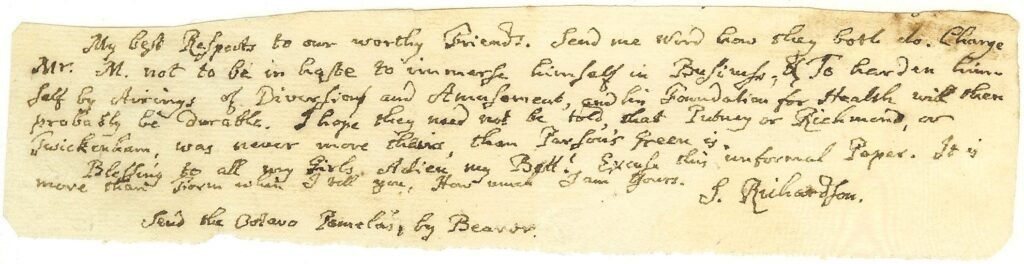 My best Respects to our worthy Friends. Send me word how they both do. Charge
Mr. M. not to be in haste to immerse himself in Business, & To harden him-
self by Airings of Diversion and Amusement, and his Foundation for Health will then
probably be durable. I hope they need not be told that Putney or Richmond, or
Twickenham, was never more theirs, than Parson's Green is.
Blessing to all my Girls. Adieu, my Bett! Excuse this unformal Paper. It is
more than Form when I tell you, How much I am Yours.
S. Richardson.
Send the Octavo Pamela's, by Bearer.